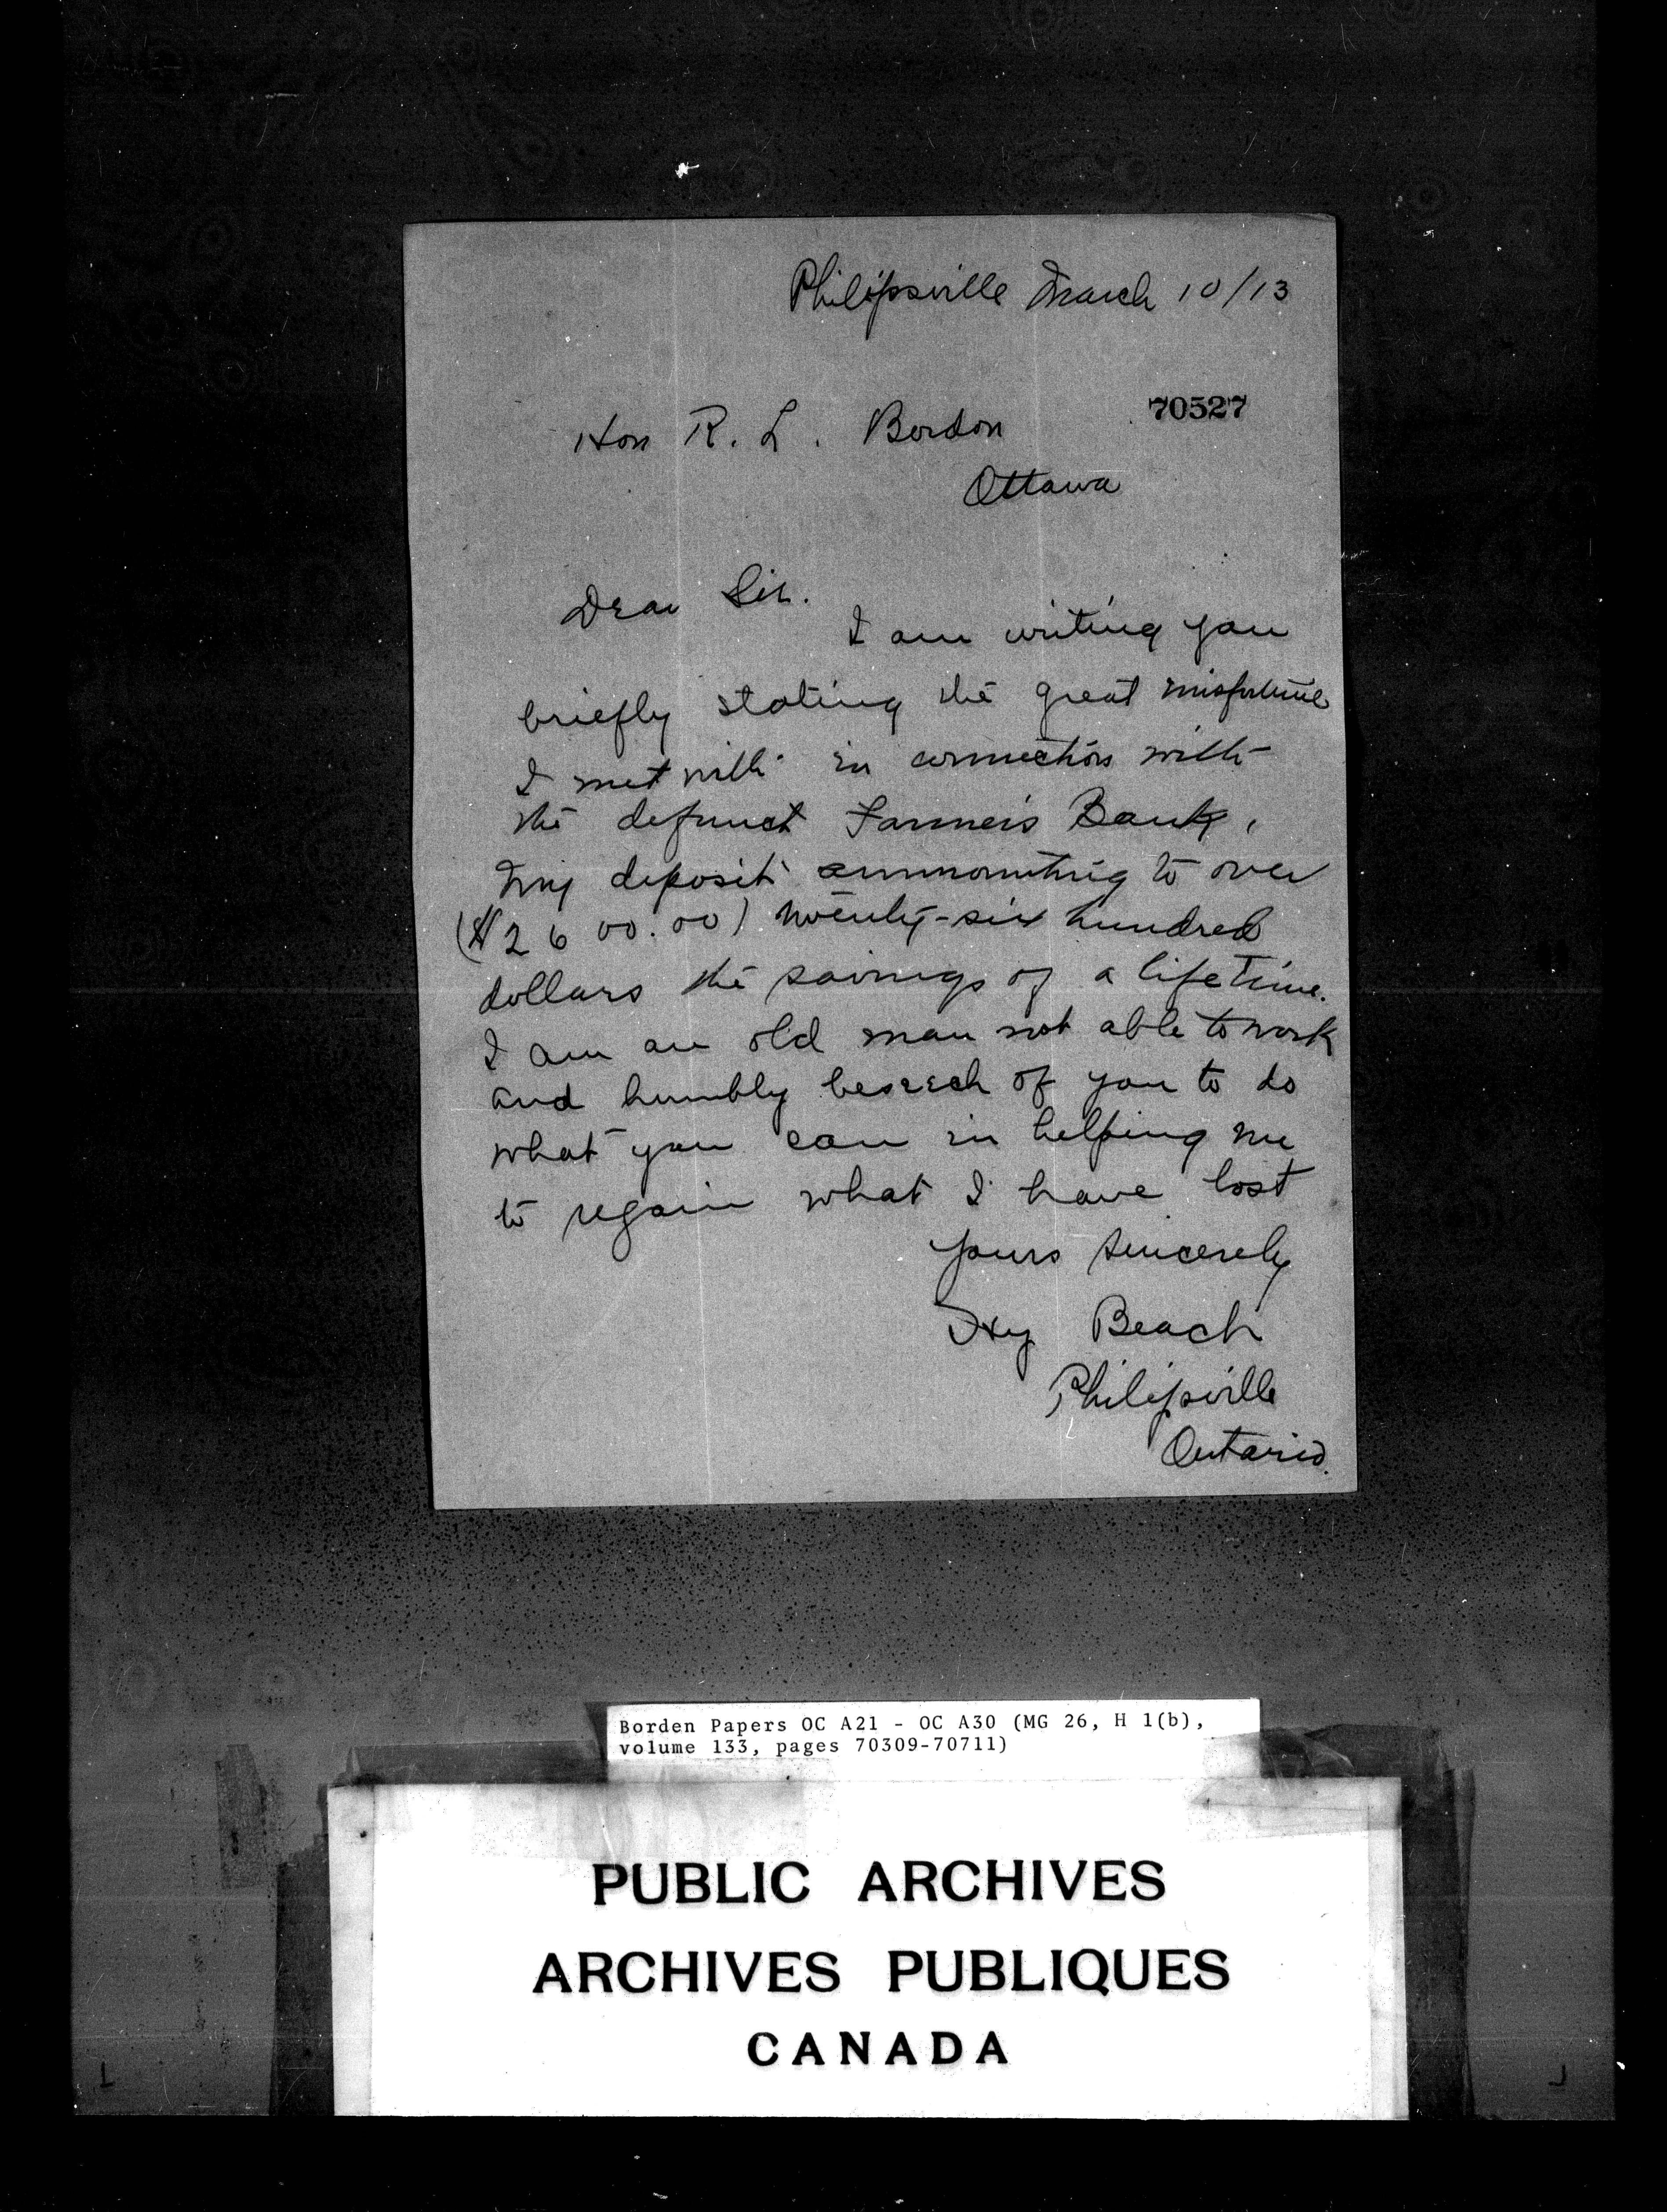 Philipsville March 10/13
70527
Hon R. L. Bordon
Ottawa
Dear Sir.
I am writing you
briefly stating the great misfortune
I met with in connection with
the defunct Farmers Bank,
my deposit ammounting to over
($2600.00) twenty-six hundred
dollars the savings of a life time.
I am an old man not able to work
and humbly beseech of you to do
what you can in helping me
to regain what I have lost
Yours sincerely
Beach
Philipsville
Ontario.
Borden Papers OC A21 - OC A30 (MG 26, H 1(b),
volume 133, pages 70309-70711)
PUBLIC ARCHIVES
ARCHIVES PUBLIQUES
CANADA